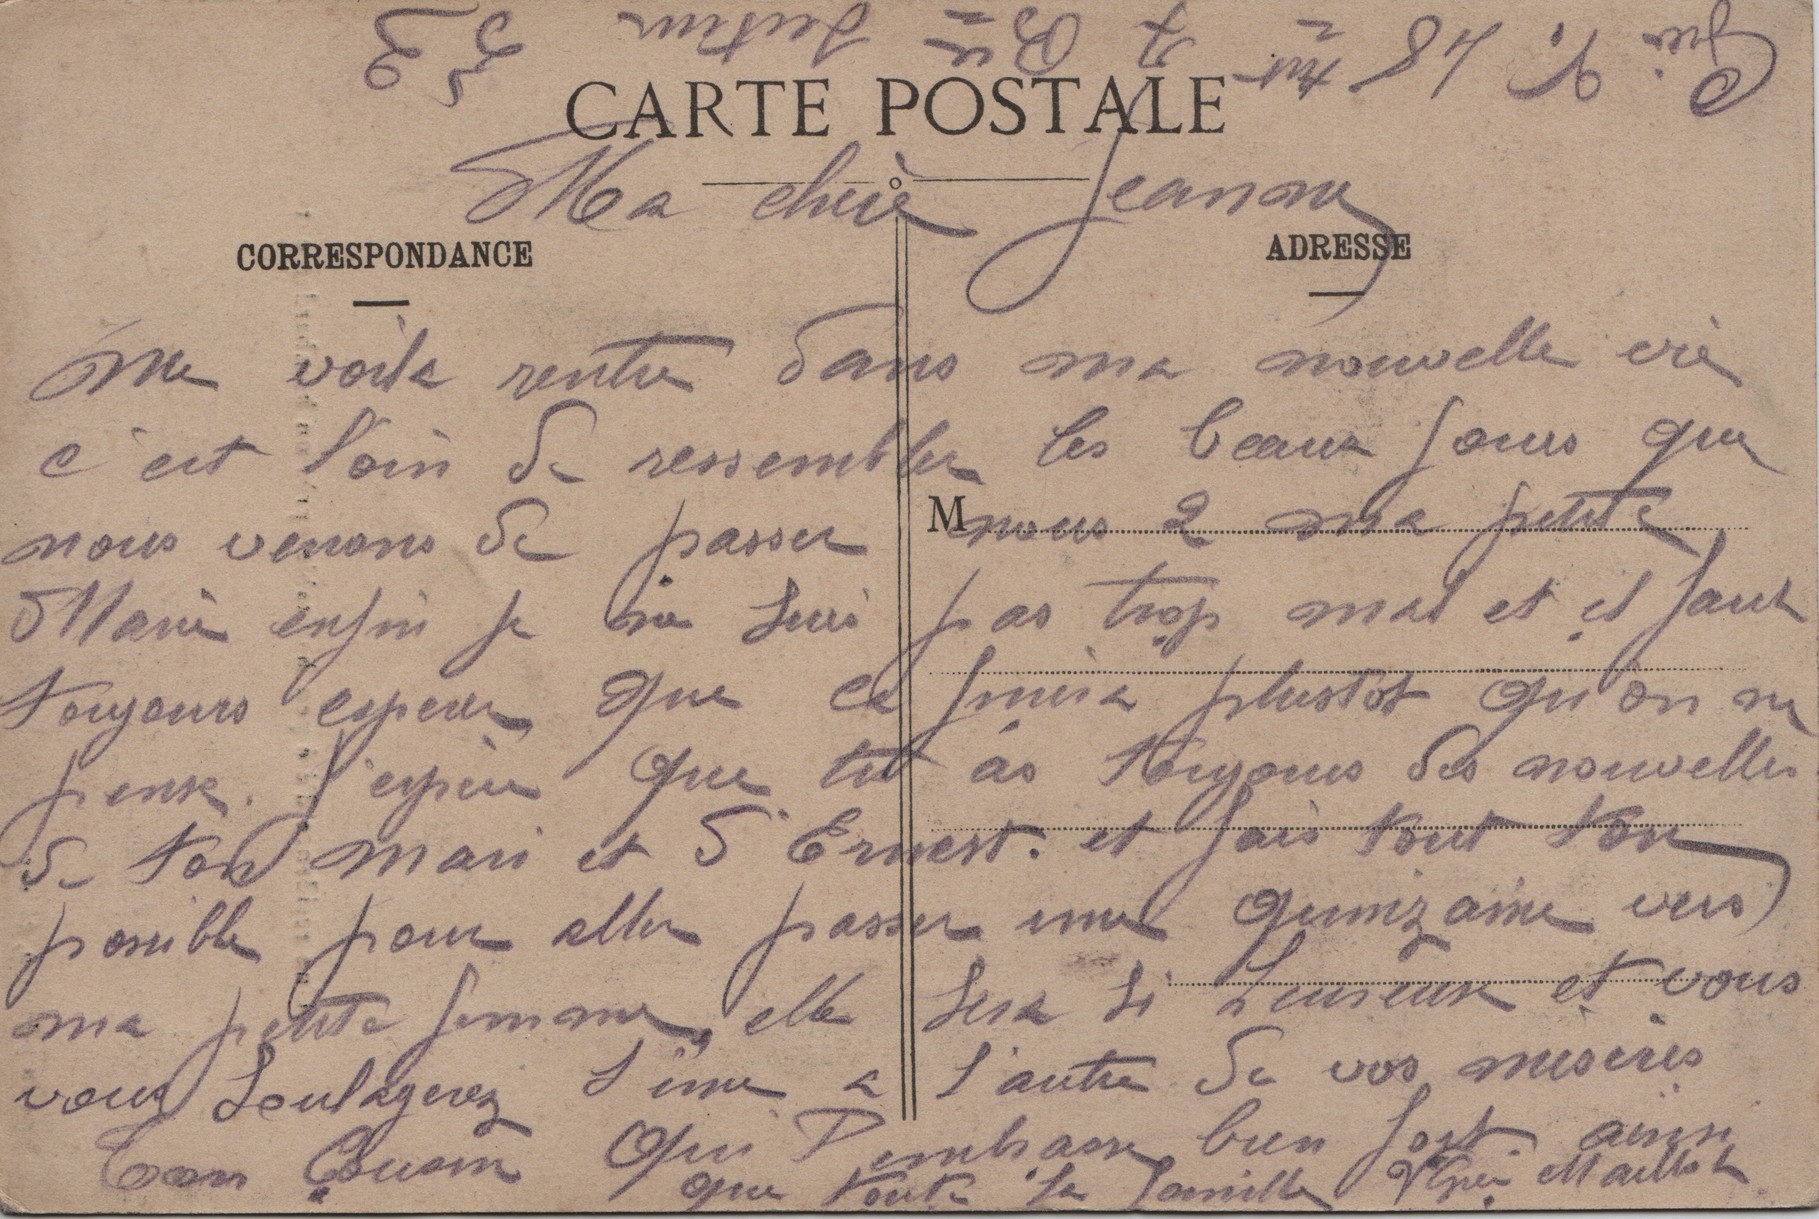 CARTE POSTALE
Ma chère Jeanne
CORRESPONDANCE
ADRESSE
Me voila rentre dans ma nouvelle vie
c'est loin de ressembler les beaux jours que
nous venons de passer nous 2 ma petite
M
Marie enfin je ne suis pas trop mal et il faut
toujours esperer que ca finira plustot qu'on ne
pense. J'espère que tu as toujours des nouvelles
de ton mari et d'Ernest. et fais tout ton
possible pour aller passer une quinzaine vers
ma petite femme, elle sera si heureuse et vous
vous soulagerez l'une a l'autre de vos miseres
Ton Cousin qui t'embrasse bien fort ainsi
que toute la famille